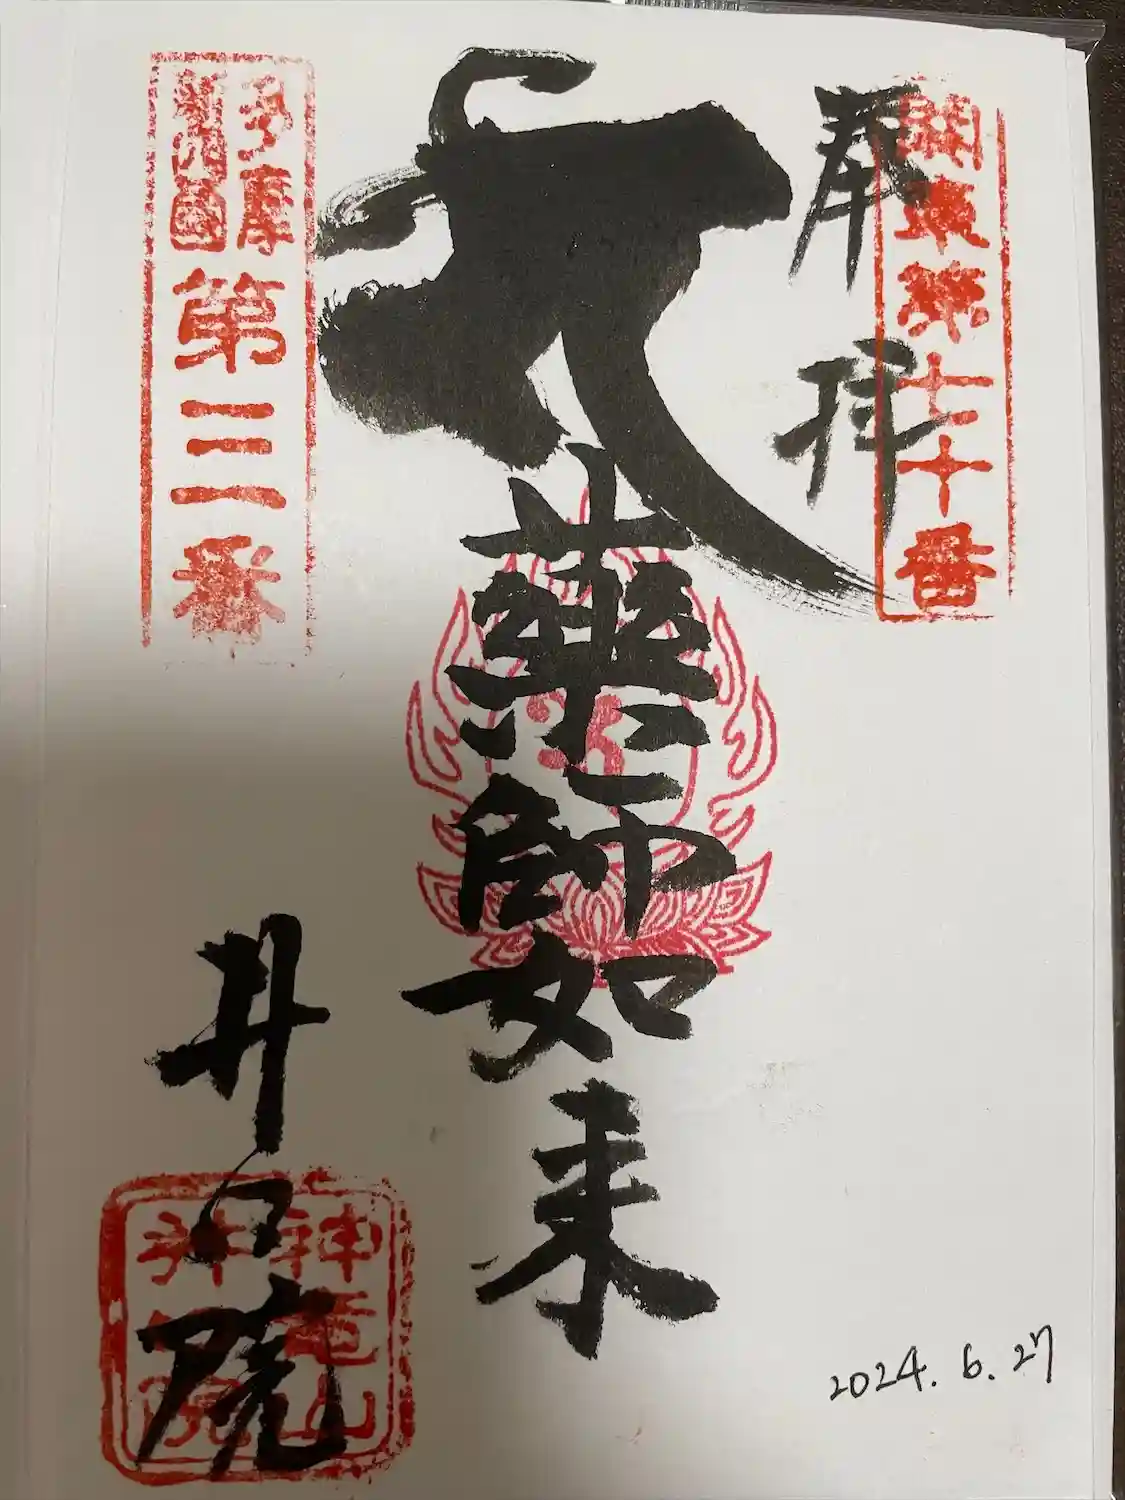 奉拝
關東藥 十番
薬師如来
多摩
新四國
第三番
井口院
神竜山
井口院
2024.6.27